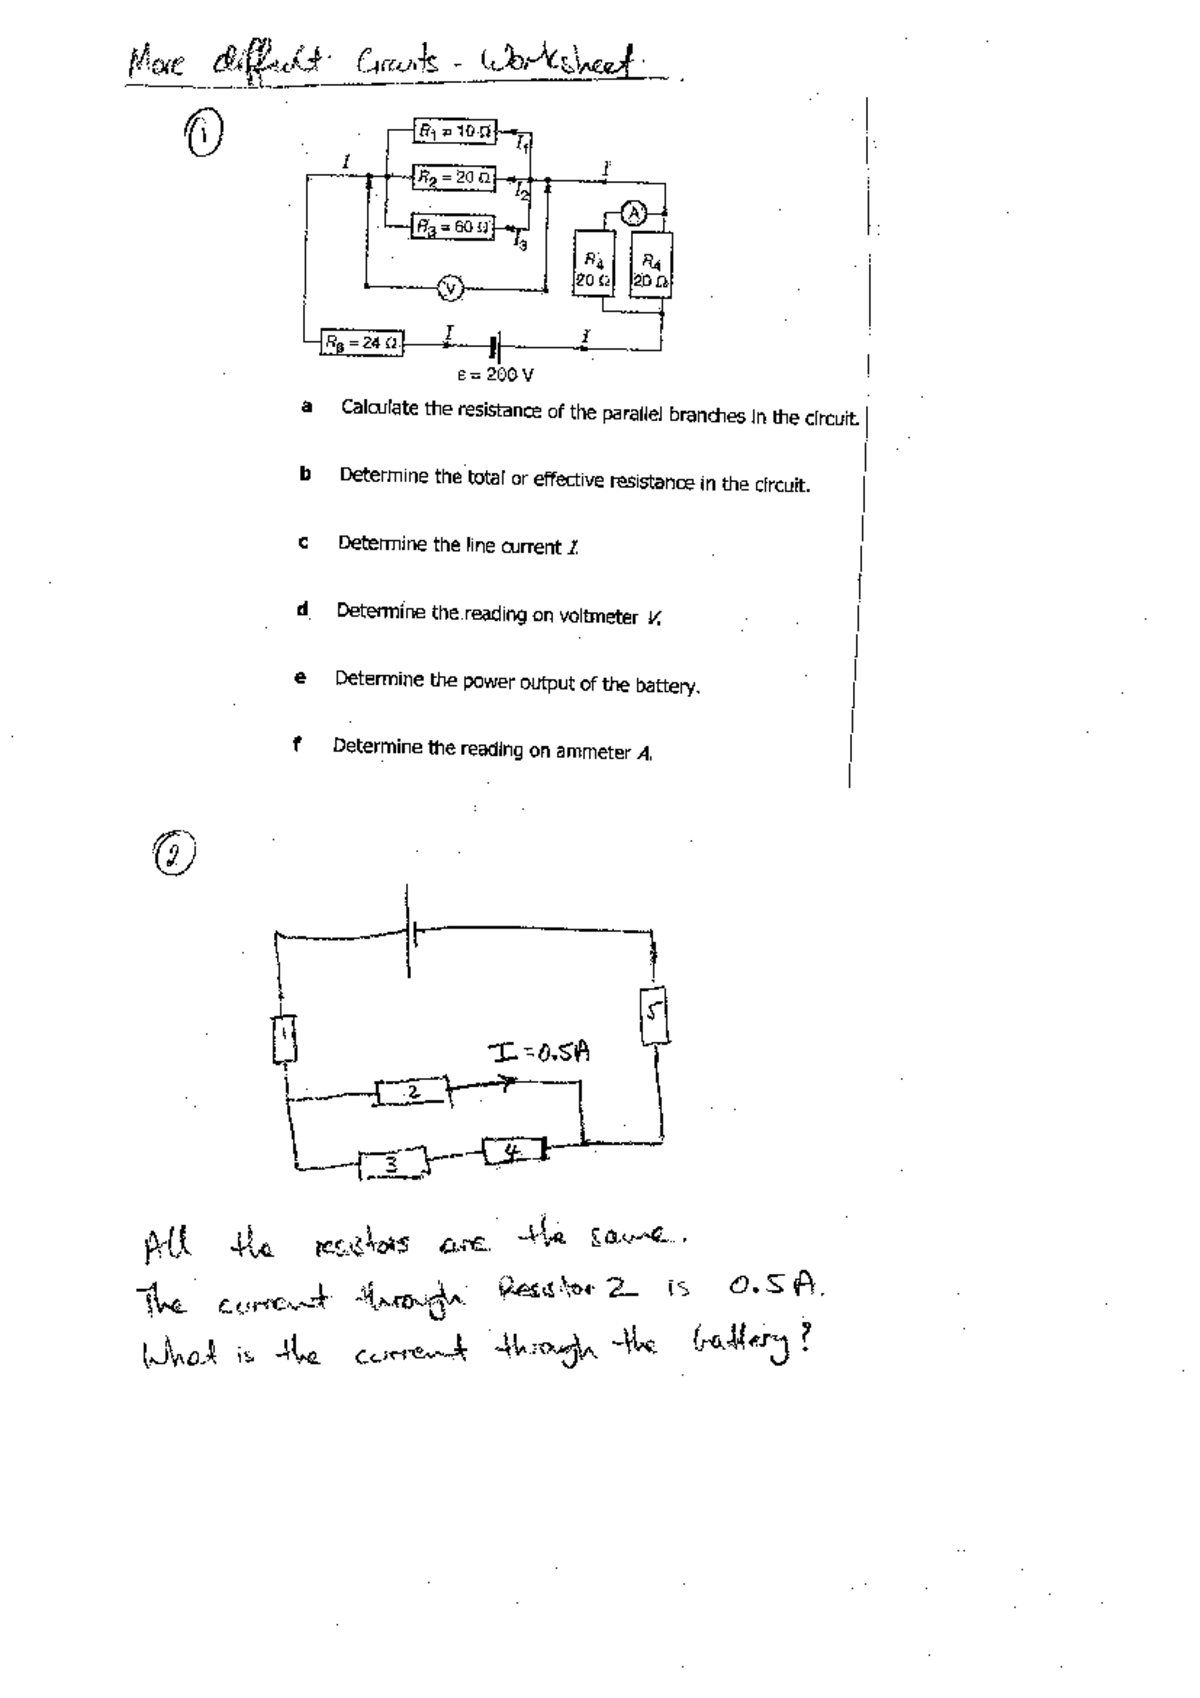 More difficult Circuits - Worksheet.
1
R1 = 10 Ω
I1
I
R2 = 20 Ω
I2
I
R3 = 60 Ω
I3
A
R4
20 Ω
R4
20 Ω
V
R6 = 24 Ω
I
I
ε = 200 V
a Calculate the resistance of the parallel branches in the circuit.
b Determine the total or effective resistance in the circuit.
c Determine the line current I.
d Determine the reading on voltmeter V.
e Determine the power output of the battery.
f Determine the reading on ammeter A.
2
1
5
I = 0.5A
2
3
4
All the resistors are the same.
The current through Resistor 2 is 0.5 A.
What is the current through the battery?